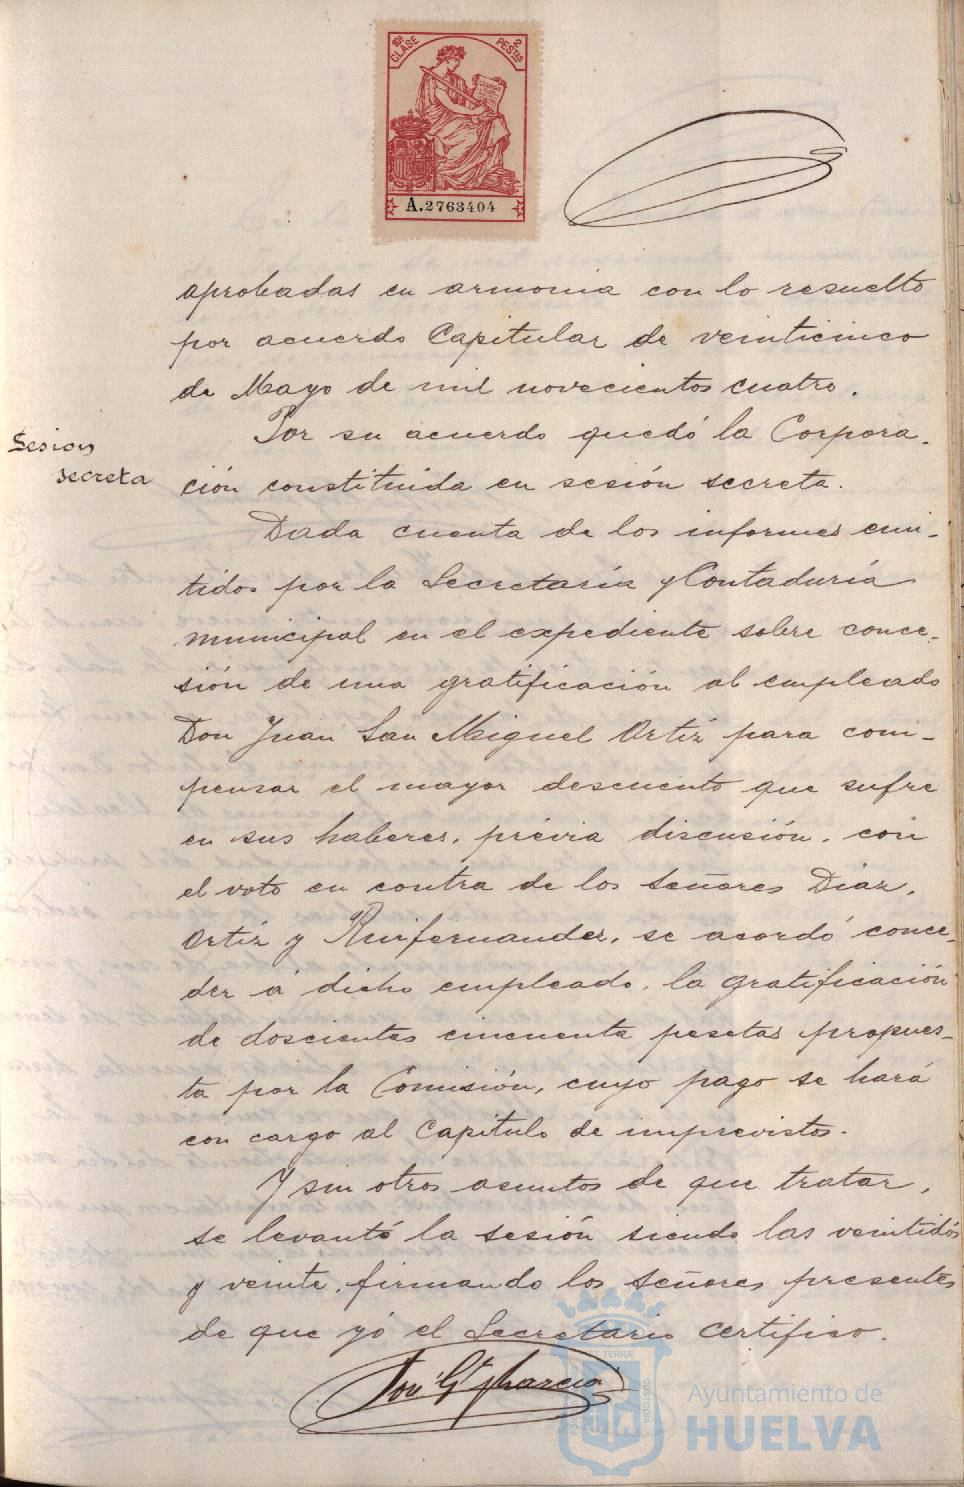 10ª CLASE
2 PESTAS
A.2763404
aprobadas en armonia con lo resuelto
por acuerdo Capitular de veinticinco
de Mayo de mil novecientos cuatro.
Sesion
secreta
Por su acuerdo quedó la Corpora-
ción constituida en sesión secreta.
Dada cuenta de los informes emi-
tidos por la Secretaría y Contaduría
municipal en el expediente sobre conce-
sión de una gratificación al empleado
Don Juan San Miguel Ortíz para com-
pensar el mayor descuento que sufre
en sus haberes, prévia discusión, con
el voto en contra de los señores Diaz,
Ortíz y Ruifernandez, se acordó conce-
der á dicho empleado, la gratificación
de doscientas cincuenta pesetas propues-
ta por la Comisión, cuyo pago se hará
con cargo al Capitulo de imprevistos.
Y sin otros asuntos de que tratar,
se levantó la sesión siendo las veintidós
y veinte, firmando los señores presentes
de que yó el Secretario certifico.
García
Ayuntamiento de
HUELVA